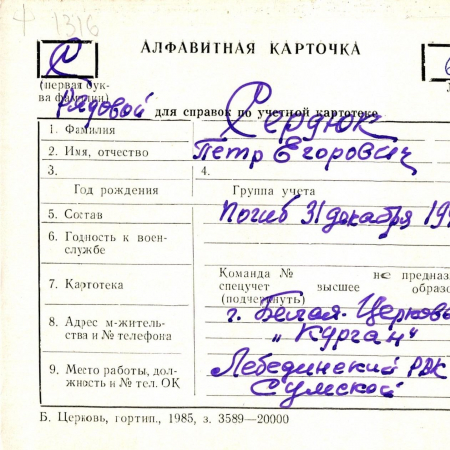 1316
С
АЛФАВИТНАЯ КАРТОЧКА
(первая бук-
ва фамилии)
Рядовой для справок по учетной картотеке
1. Фамилия Сердюк
2. Имя, отчество Петр Егорович
3. 4.
Год рождения Группа учета
5. Состав Погиб 31 декабря 19
6. Годность к воен-
службе
Команда № не предназ
7. Картотека спецучет высшее образо
(подчеркнуть)
8. Адрес м-житель-
ства и № телефона г. Белая-Церковь
„Курган"
9. Место работы, дол-
жность и № тел. ОК Лебединский РВК
Сумской
Б. Церковь, гортип., 1985, з. 3589—20000